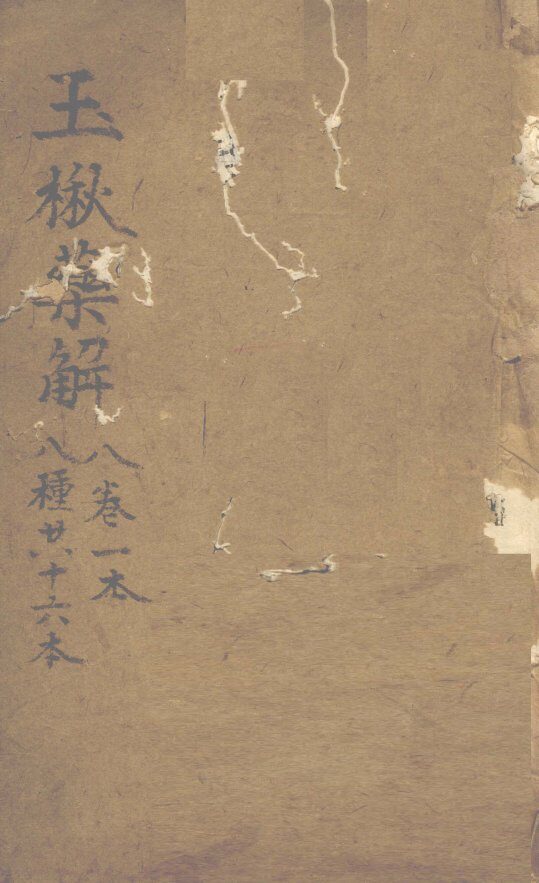 玉楸藥解
八卷一本
八種共十六本